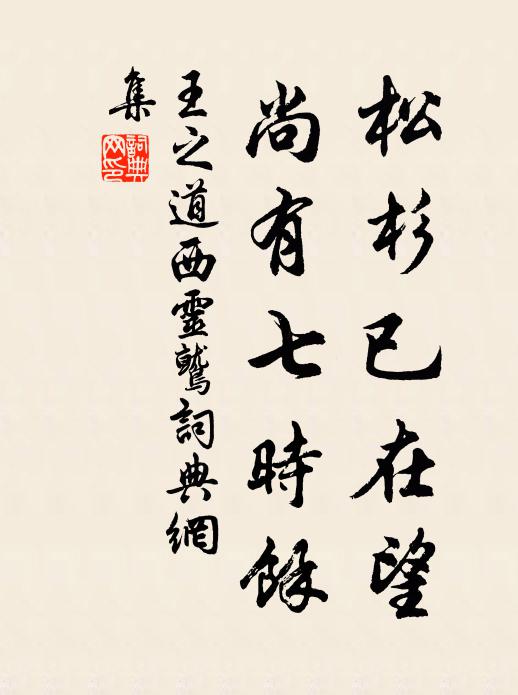 松杉已在望
尚有七時餘
王之道西靈鷲詞典網
集
詞典網印